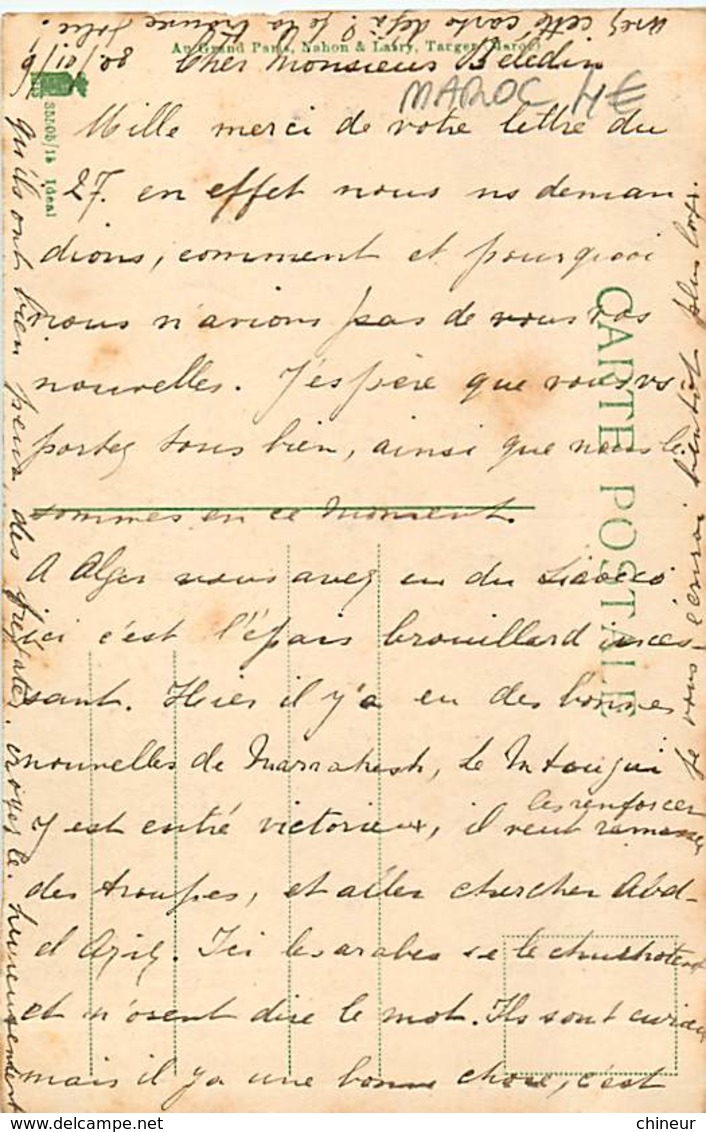 avez cette carte déjà? Je la trouve jolie!
Au Grand Paris, Nahon & Lasry, Tanger (Maroc)
Cher Monsieur Beledin
MAROC 4€
Mille merci de votre lettre du
27. en effet nous ns deman
dions, comment et pourquoi
nous n'avions pas de vous vos
nouvelles. J'espère que vous vs
portez tous bien, ainsi que nous le
sommes en ce moment.
A Alger vous avez eu du Siroco
ici c'est l'épais brouillard inces-
sant. Hier il y'a eu des bonnes
nouvelles de Marrakesh, le Mtougui
y est entré victorieux, il veut ramasser
les renforcer
des troupes, et aller chercher Abd-
el Aziz. Ici les arabes se le chuchotent
et n'osent dire le mot. Ils sont curieux
mais il y a une bonne chose, c'est
qu'ils ont bien peur des frégates, croyez le, heureusement
Je vous écrirai bientôt plus long.
CARTE POSTALE
Ideal
chineur